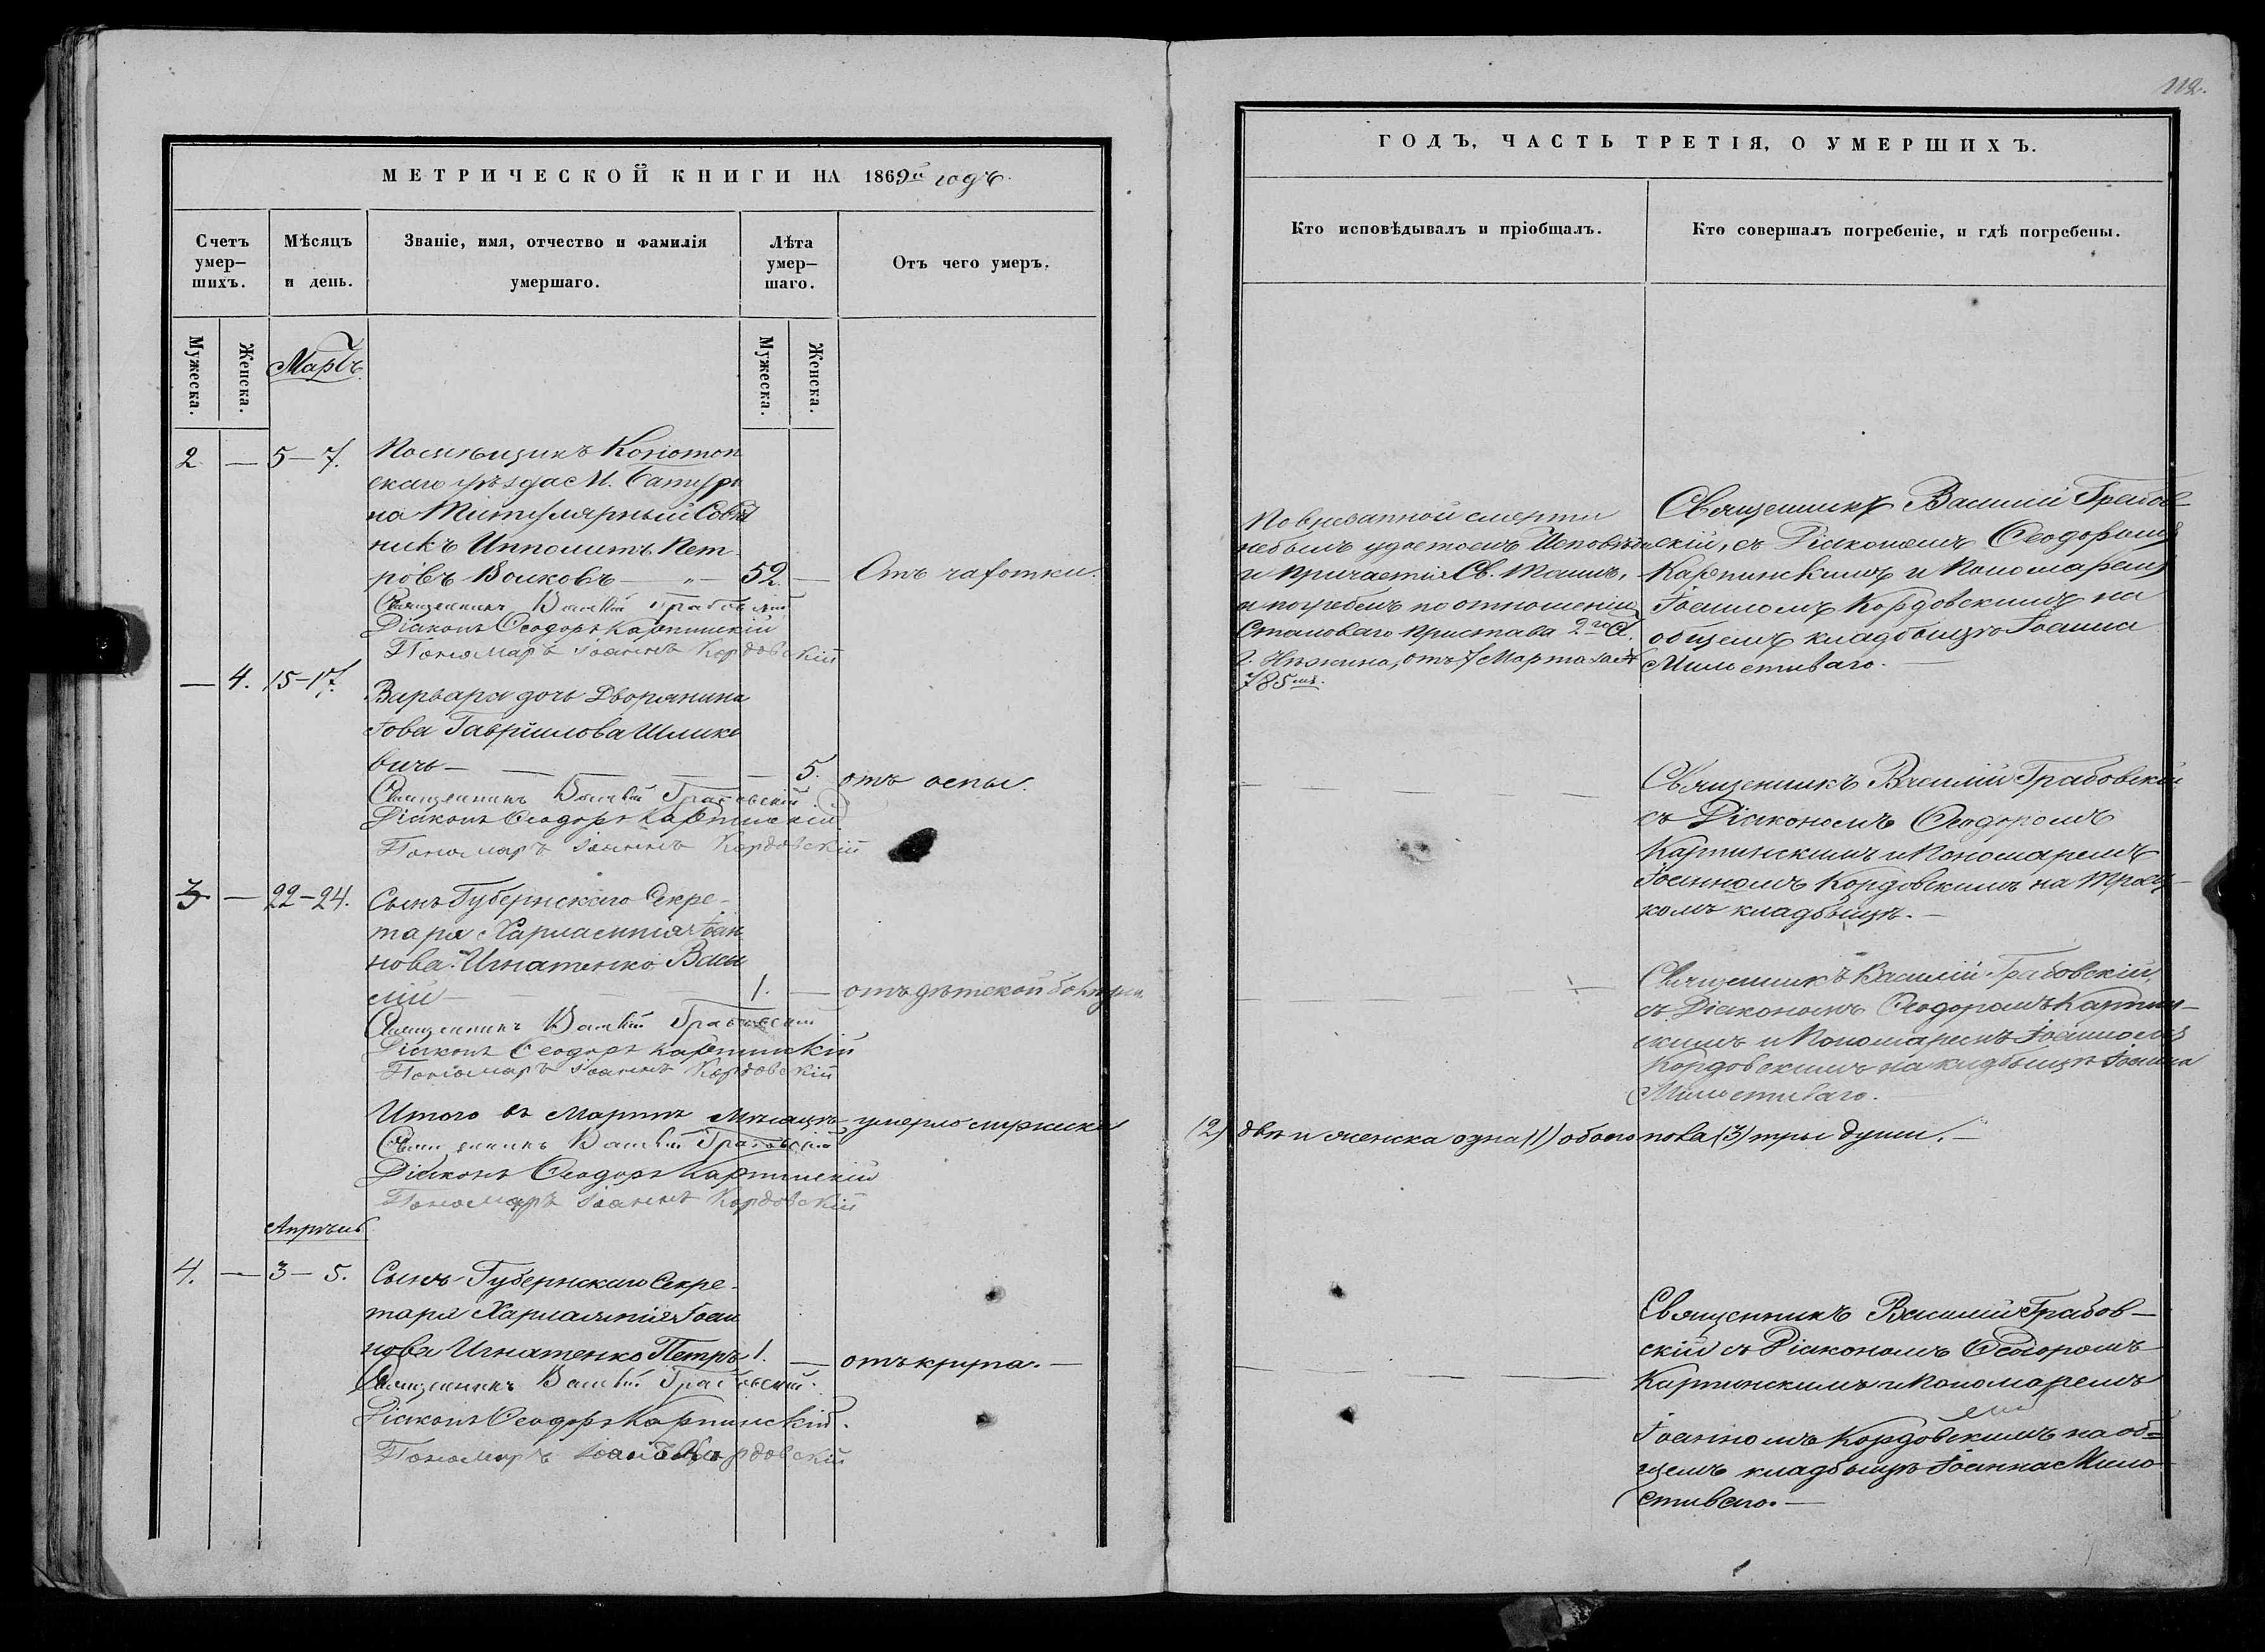 МЕТРИЧЕСКОЙ КНИГИ НА 1869й годъ.
Счетъ умер-
шихъ.
Мѣсяцъ
и день.
Званіе, имя, отчество и фамилія
умершаго.
Лѣта
умер-
шаго.
Отъ чего умеръ.
Мужеска.
Женска.
Мартъ.
Мужеска.
Женска.
2. — 5–7. Помѣщикъ Коnотоп
скаго уѣзда М. Батури
на Титулярный Совѣт
никъ Ипполитъ Пет-
ровъ Волковъ — „ — 52. — Отъ чахотки.
Священникъ Василій Грабовскій
Діаконъ Ѳеодоръ Карпинскій
Пономаръ Іоаннъ Кордовскій
— 4. 15–17. Варвара дочь Дворянина
Іова Гавріилова Шлике
вичъ — — — — 5. отъ оспы.
Священникъ Василій Грабовскій
Діаконъ Ѳеодоръ Карпинскій
Пономаръ Іоаннъ Кордовскій
3 — 22–24. Сынъ Губернскаго Секре-
таря Харлампія Іоан
нова Игнатенко Васи
лій — 1. — отъ дѣтской болѣзни
Священникъ Василій Грабовскій
Діаконъ Ѳеодоръ Карпинскій
Пономаръ Іоаннъ Кордовскій
Итого въ Мартѣ мѣсяцѣ умерло мужска
Священникъ Василій Грабовскій
Діаконъ Ѳеодоръ Карпинскій
Пономаръ Іоаннъ Кордовскій
Апрѣль
4. — 3–5. Сынъ Губернскаго Секре-
таря Харлампія Іоан
нова Игнатенко Петръ 1. — отъ крупа. —
Священникъ Василій Грабовскій.
Діаконъ Ѳеодоръ Карпинскій.
Пономаръ Іоаннъ Кордовскій
112.
ГОДЪ, ЧАСТЬ ТРЕТІЯ, О УМЕРШИХЪ.
Кто исповѣдывалъ и пріобщалъ.
Кто совершалъ погребеніе, и гдѣ погребены.
По внезапной смерти
небылъ удостоенъ Исповѣди
и Причастія Св. Таинъ,
и погребенъ по отношенію
Становаго пристава 2го С.
г. Нѣжина, отъ 7 Марта за №
785мъ.
Священникъ Василій Грабов-
скій, съ Діакономъ Ѳеодоромъ
Карпинскимъ и Пономаремъ
Іоанномъ Кордовскимъ на
общемъ кладбищѣ Іоанна
Милостиваго. —
Священникъ Василій Грабовскій
съ Діакономъ Ѳеодоромъ
Карпинскимъ и Пономаремъ
Іоанномъ Кордовскимъ на Троиц-
комъ кладбищѣ. —
Священникъ Василій Грабовскій,
съ Діакономъ Ѳеодоромъ Карпин-
скимъ и Пономаремъ Іоанномъ
Кордовскимъ на кладбищѣ Іоанна
Милостиваго.
(2) двѣ и женска одна (1) обоего пола (3) три души. —
Священникъ Василій Грабов-
скій съ Діакономъ Ѳеодоромъ
Карпинскимъ и Пономаремъ
Іоанномъ Кордовскимъ на об=
щемъ кладбищѣ Іоанна Мило
стиваго. —